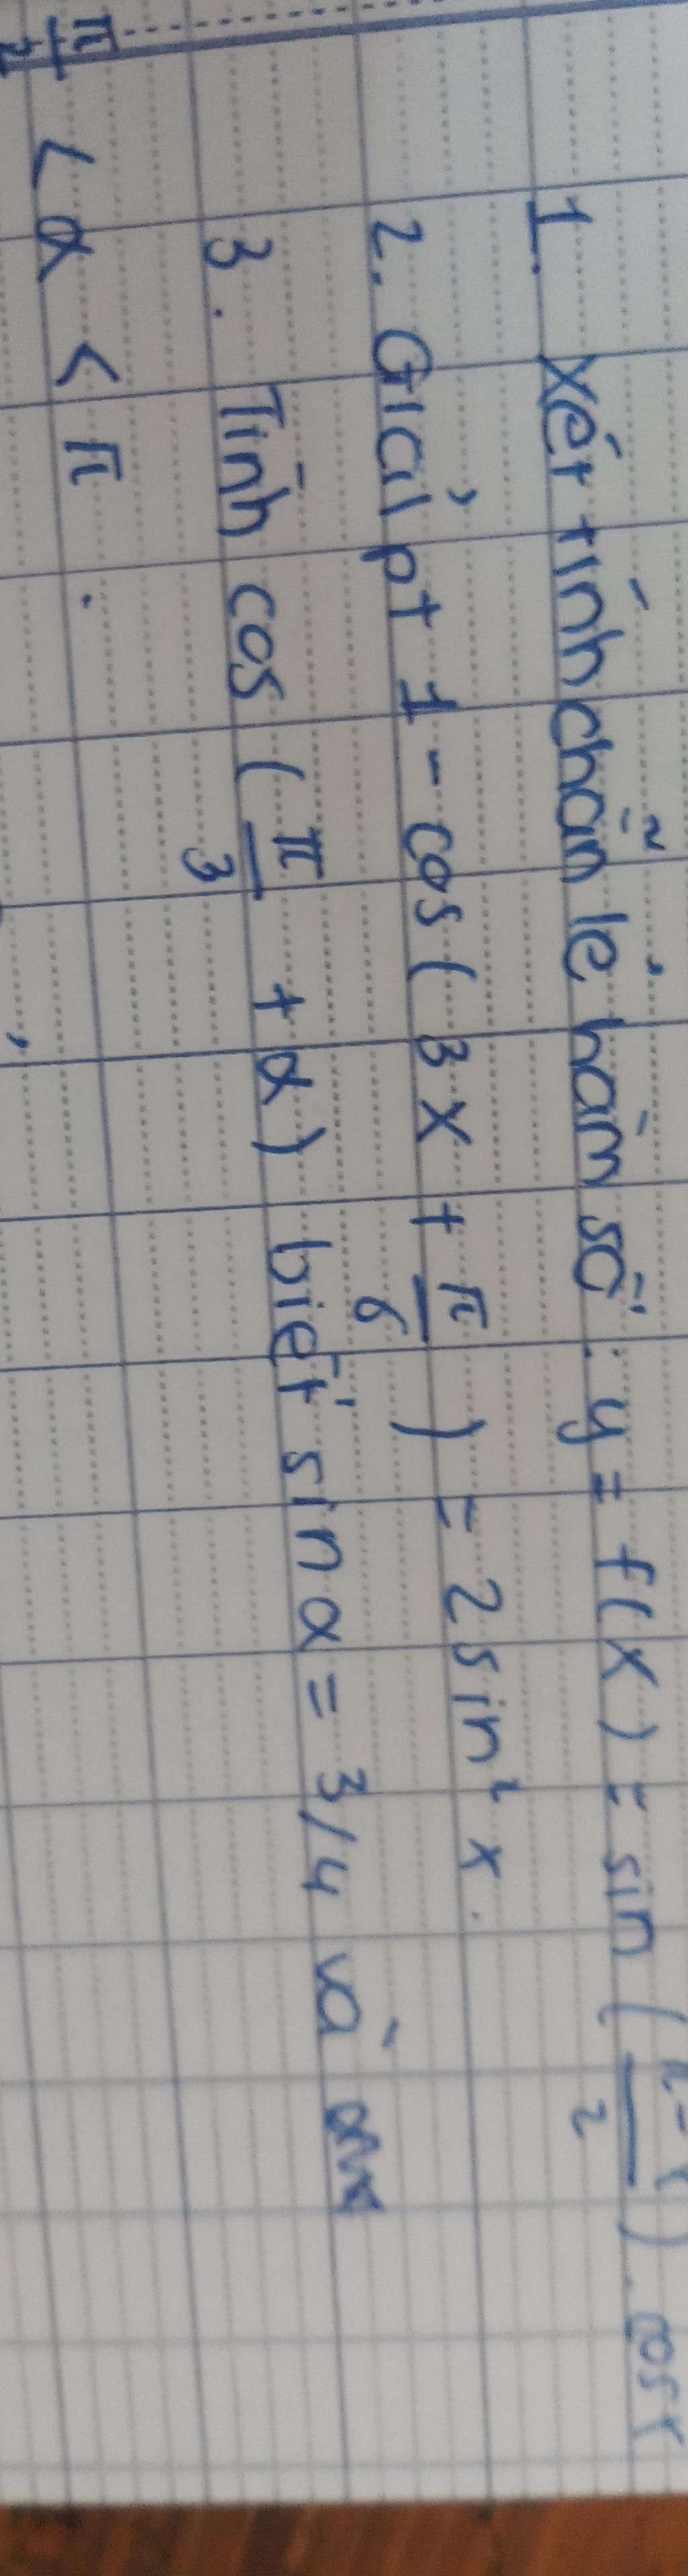 1. Xét tính chẵn lẻ hàm số : y = f(x) = sin ( /2 ) . cos x
2. Giải pt 1 - cos ( 3x + π/6 ) = 2 sin² x .
3. Tính cos ( π/3 + α ) biết sin α = 3/4 và
π/2 < α < π .